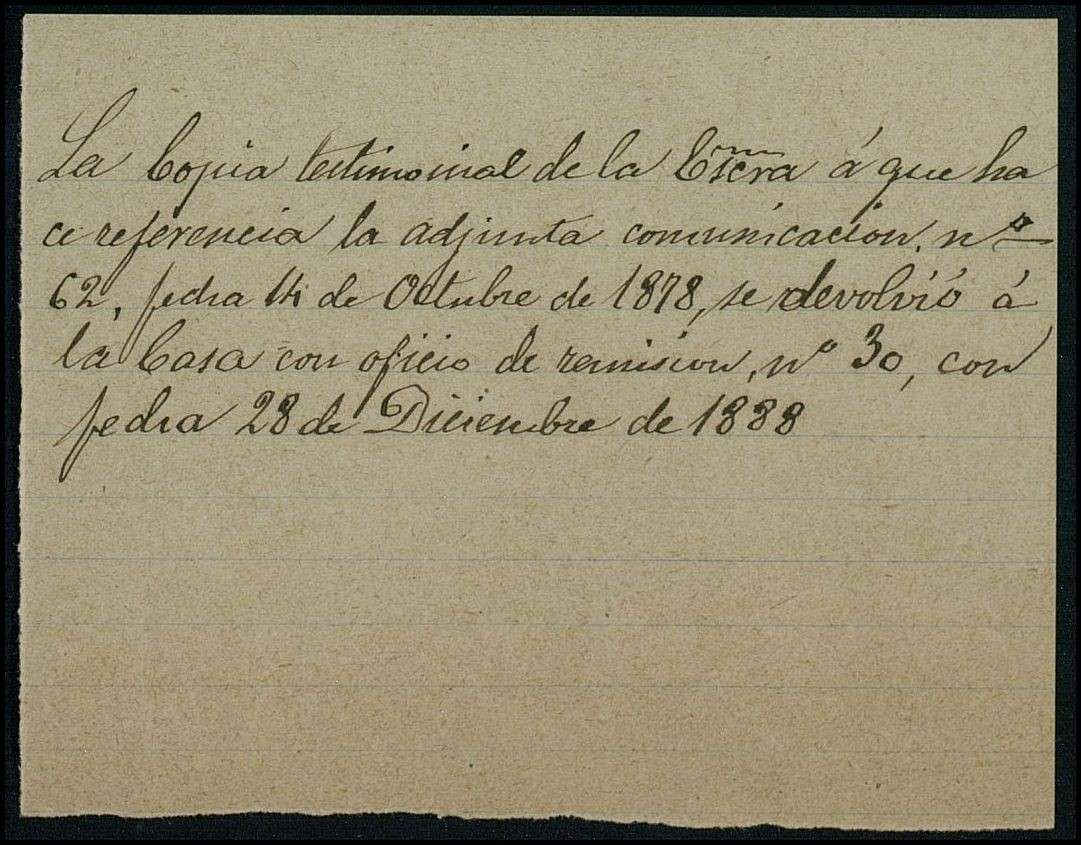 La Copia testimoinal de la Escra á que ha
ce referencia la adjunta comunicacion. nº
62, fecha 14 de Octubre de 1878, se devolvió á
la Casa con oficio de remision, nº 30, con
fecha 28 de Diciembre de 1888